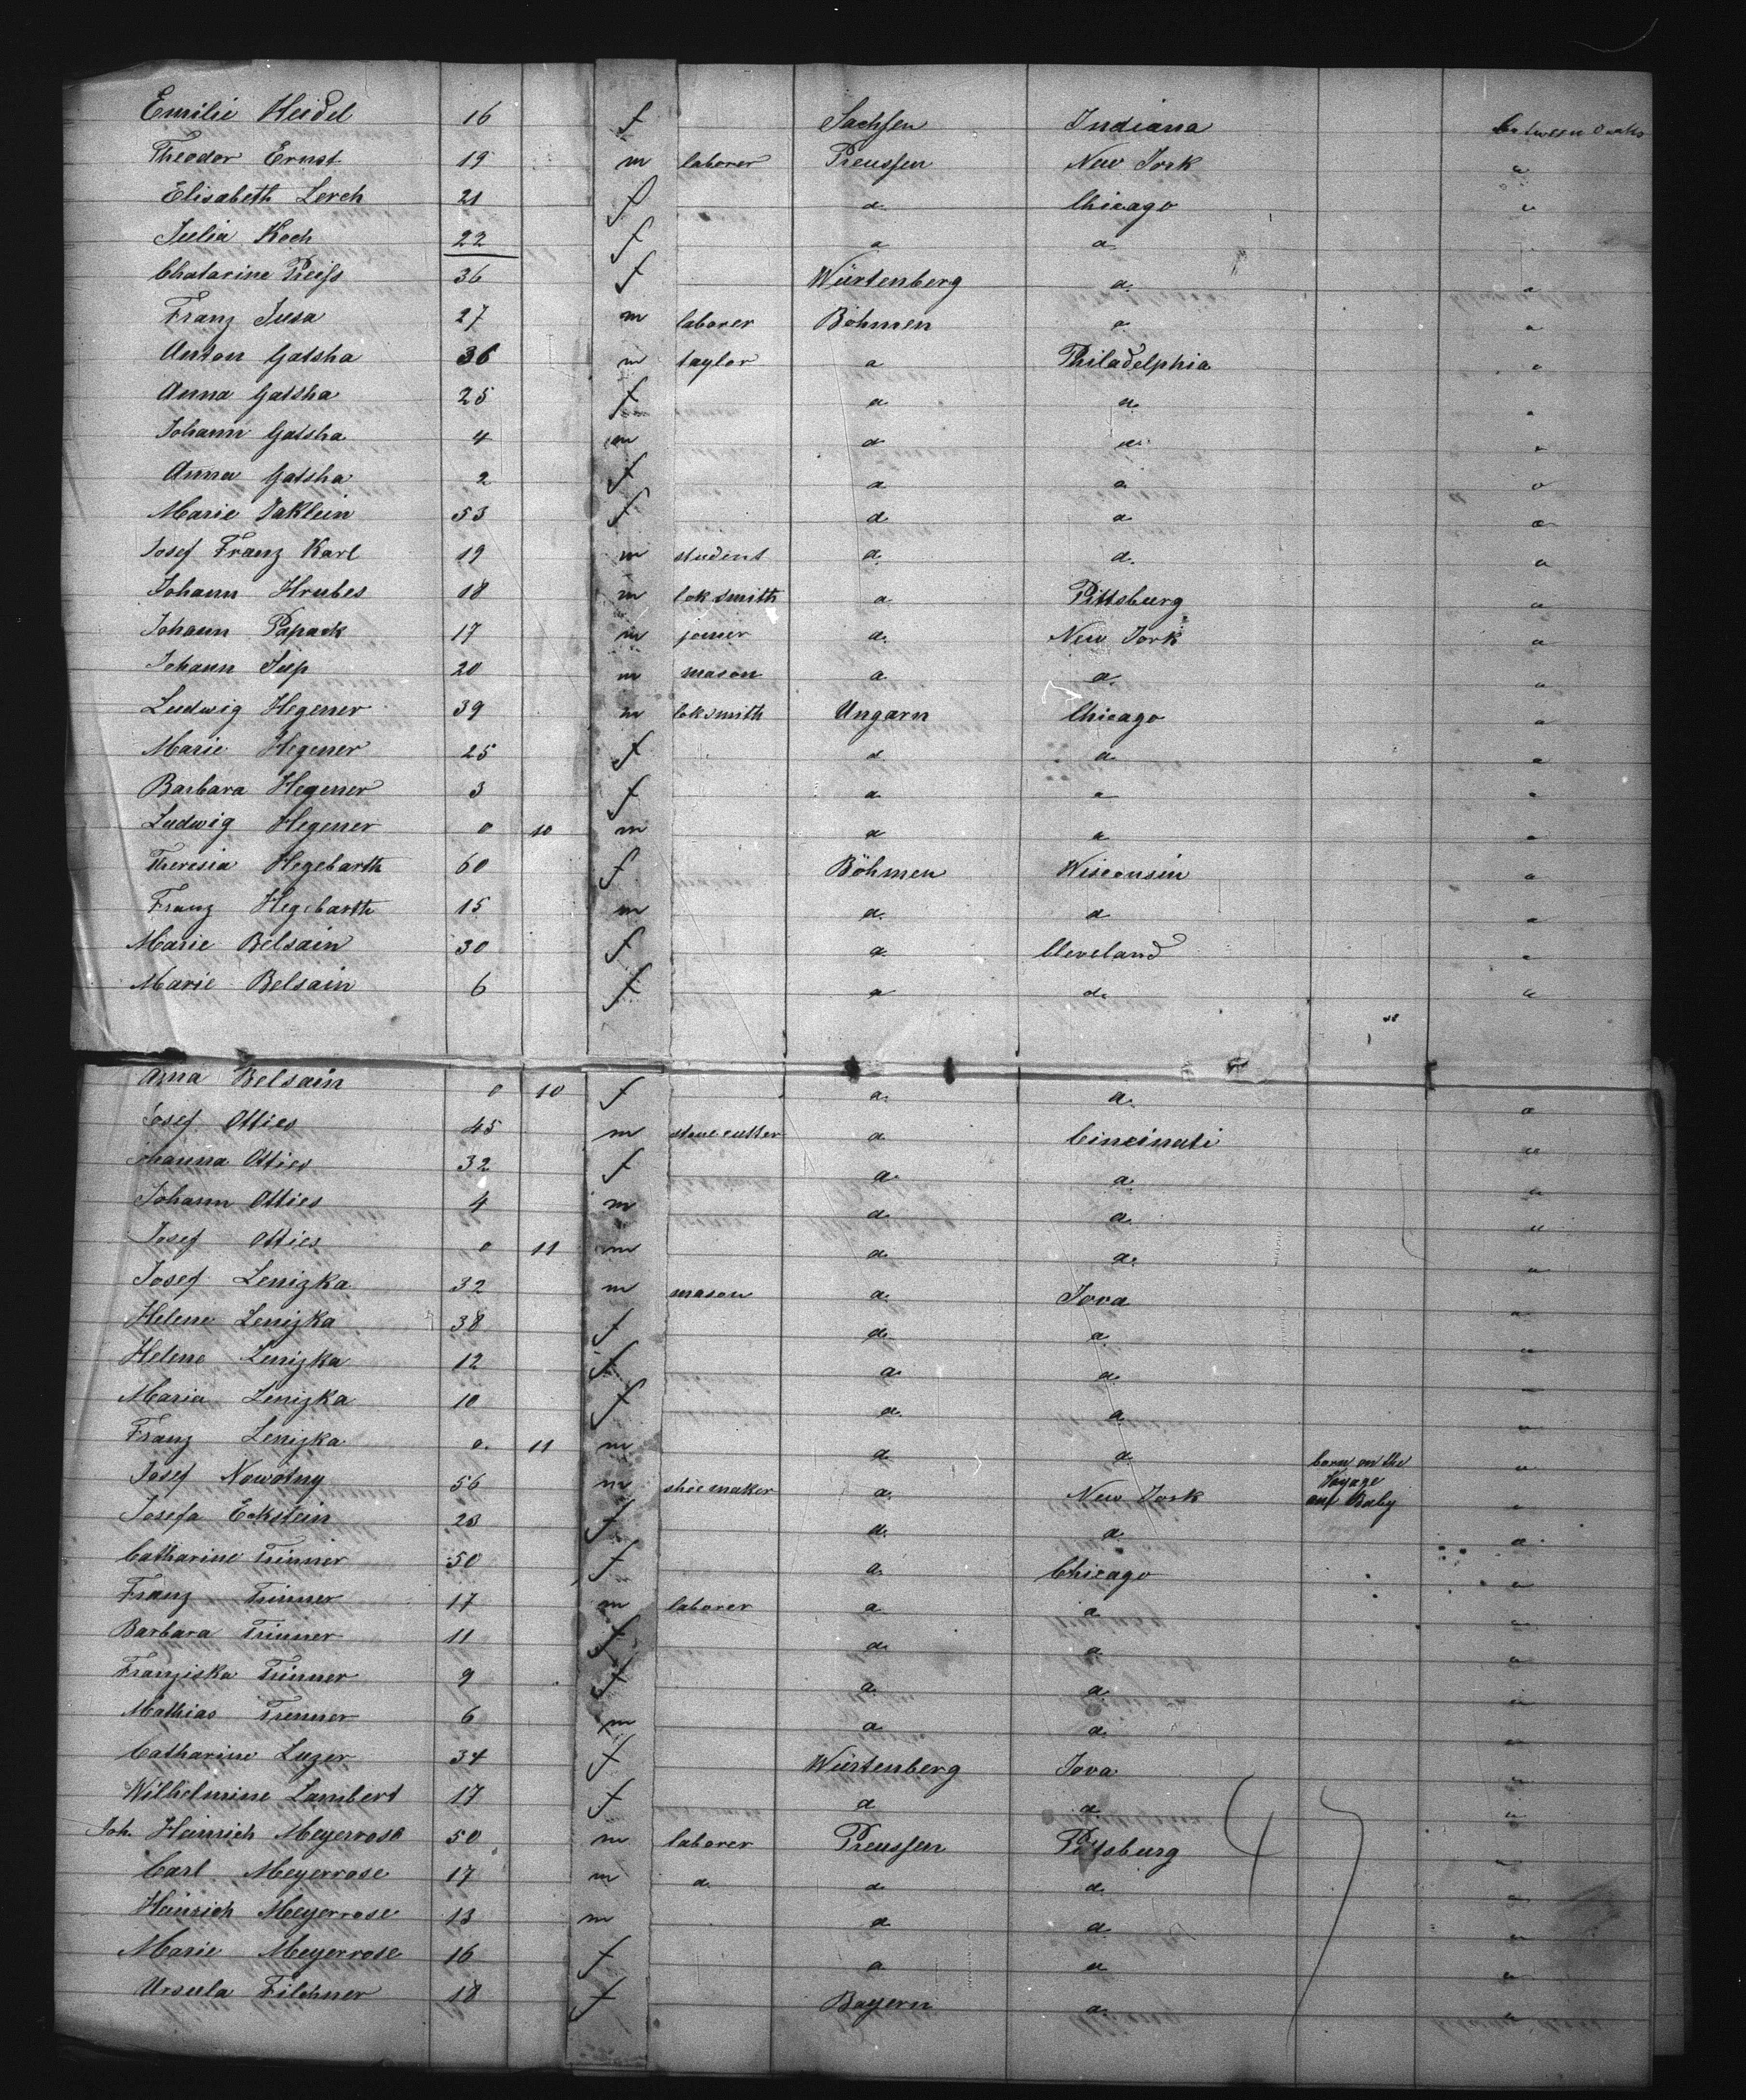 Emilie Heidel 16 f Sachsen Indiana between Decks
Theodor Ernst 19 m laborer Preussen New York "
Elisabeth Lerch 21 f d. Chicago "
Julia Koch 22 f d d
Chatarine Preiss 36 f Würtenberg d. "
Franz Jusa 27 m laborer Böhmen d "
Anton Gatsha 36 m taylor d Philadelphia "
Anna Gatsha 25 f d d "
Johann Gatsha 4 m d d "
Anna Gatsha 2 f d d "
Marie Jaklein 53 f d d "
Josef Franz Karl 19 m student d. d. "
Johann Hrubes 18 m loksmith d Pittsburg "
Johann Papack 17 m joiner d. New York "
Johann Sup 20 m mason d. d. "
Ludwig Hegener 39 m loksmith Ungarn Chicago "
Marie Hegener 25 f d. d "
Barbara Hegener 3 f d d "
Ludwig Hegener 0 10 m d d "
Theresia Hegebarth 60 f Böhmen Wisconsin "
Franz Hegebarth 15 m d. d "
Marie Belsain 30 f d. Cleveland "
Marie Belsain 6 f d d. "
Anna Belsain 0 10 f d. d. "
Josef Otties 45 m stone cutter d. Cincinati "
Johanna Otties 32 f d. d. "
Johann Otties 4 m d. d. "
Josef Otties 0 11 m d. d. "
Josef Lenizka 32 m mason d. Iova "
Helene Lenizka 38 f d. d. "
Helene Lenizka 12 f d. d. "
Maria Lenizka 10 f d. d "
Franz Lenizka 0. 11 m d d born on the "
Voyage
Josef Nowotny 56 m shoemaker d. New York Baby "
Josefa Eckstein 23 f d. d "
Catharine Trinner 50 f d. Chicago "
Franz Trinner 17 m laborer d. d "
Barbara Trinner 11 f d. d. "
Franziska Trinner 9 f d. d. "
Mathias Trinner 6 m d d. "
Catharine Luzer 34 f Würtenberg Iova "
Wilhelmine Lambert 17 f d d. "
Joh. Heinrich Meyerrose 50 m laborer Preussen Pittsburg "
Carl Meyerrose 17 m d. d d. "
Heinrich Meyerrose 13 m d d. "
Marie Meyerrose 16 f d d "
Ursula Filchner 18 f Bayern d. "